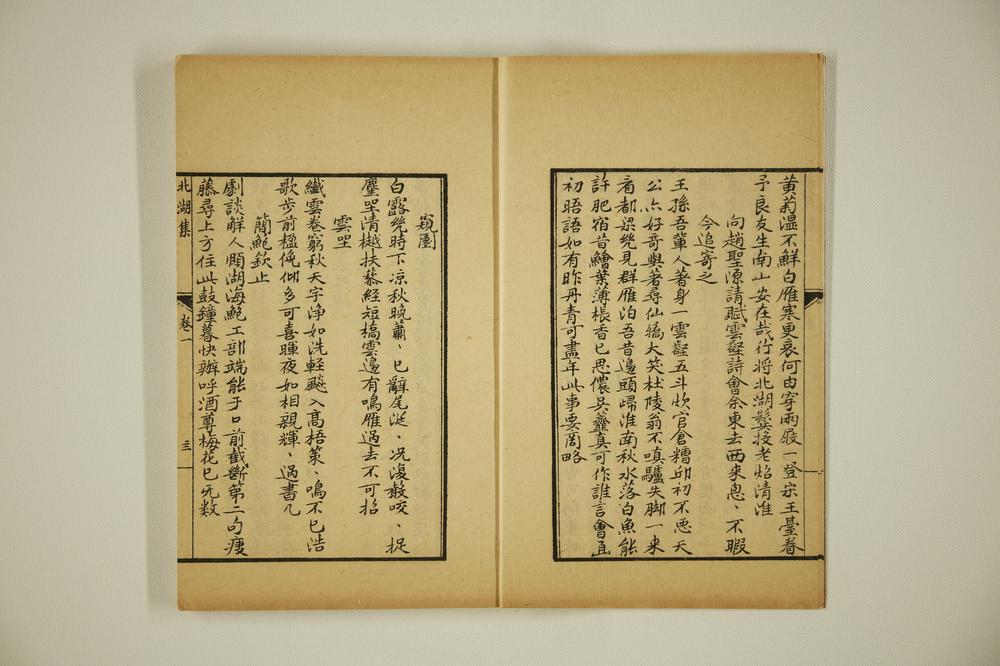 黄菊溫不鮮白雁寒更哀何由穿兩屐一登宋王臺眷
予良友生南山安在哉行將北湖鬢投老焰清淮
向趙聖源請賦雲壑詩會余東去西來怱、不暇
今追寄之
王孫吾輩人著身一雲壑五斗炊官倉糟丘初不惡天
公亦好奇與著尋仙矯大笑杜陵翁不嗔驢失脚一来
看都梁幾見群雁泊吾昔邊頭歸淮南秋水落白魚能
許肥宿昔鱠葉薄棖香已思儂吴虀真可作誰言會直
初晤語如有昨丹青可盡年此事妥周略
窺園
白露幾時下凉秋晚蕭、已辭尾涎、况復教咬、捉
麈坐清樾扶藜經短橋雲邊有鳴雁過去不可招
雲坐
纖雲卷窮秋天宇浄如洗輕飈入高梧策、鳴不已浩
歌步前楹俛仰多可喜暉夜如相親輝、過書几
簡鮑欽止
劇談解人頤湖海鮑工部端能于口前截斷第二句瘦
藤尋上方住此鼓鐘暮快辦呼酒尊梅花已无数
北湖集
卷一
三